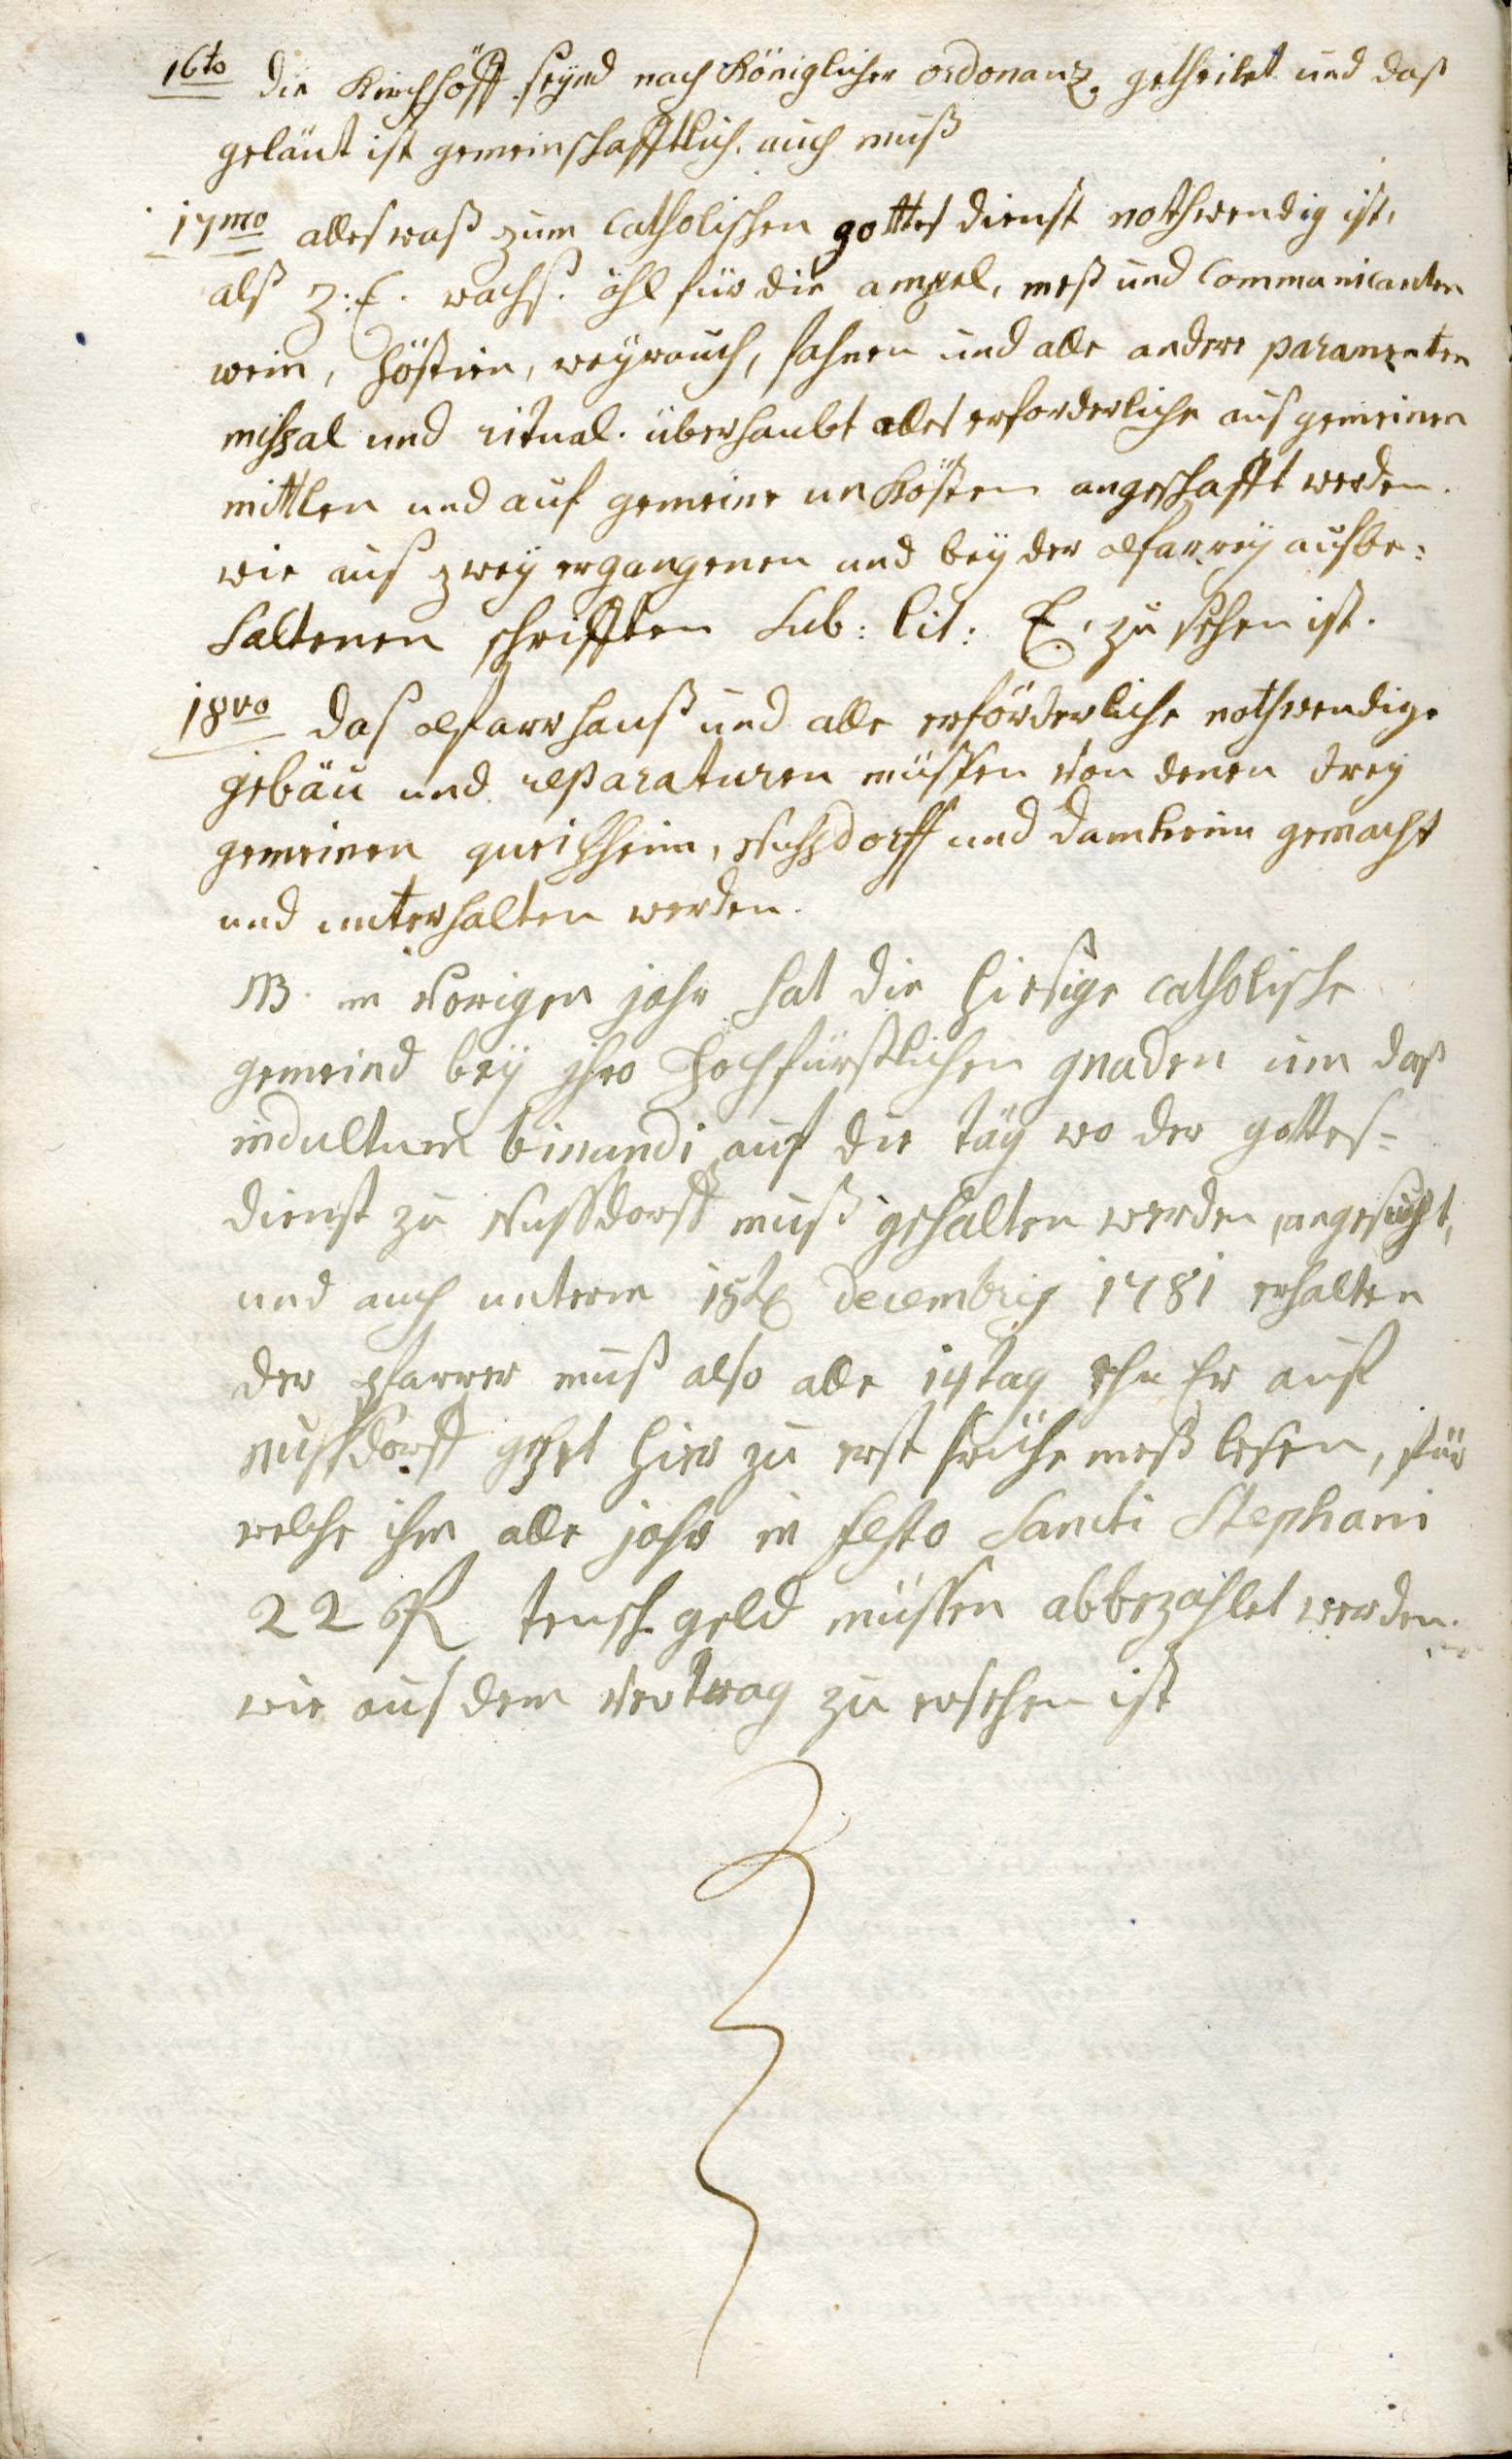 16to die Kirchhöff seynd nach Königlicher ordonanz getheilet und daß
geläut ist gemeinschafftlich. auch muß
17mo alles waß zum catholischen gottes dienst nothwendig ist,
alß z: E. wachß. öhl für die ampel, meß und Communicanten
wein, höstien, weyrauch, fahnen und alle andere paramenten
missal und ritual. überhaubt alles erforderliche aus gemeinen
mittlen und auf gemeine unkösten angeschafft werden.
wie aus zwey ergangenen und bey der pfarrey aufbe:
haltenen schrifften Sub: lit: E. zu sehen ist.
18vo das pfarrhauß und alle erförderliche nothwendige
gebäu und reparaturen müssen von denen drey
gemeinen queichheim, Nußdorff und damheim gemacht
und unterhalten werden.
NB. im vorigen jahr hat die hiesige catholische
gemeind bey ihro Hochfürstlichen gnaden um daß
indultum binandi auf die täg wo der gottes=
dienst zu Nussdorff muß gehalten werden, angesucht,
und auch unterm 15t decembris 1781 erhalten
der pfarrer muß also alle 14 tag ehe Er auf
nussdorff gehet hier zu erst frühe meß lesen, für
welche ihm alle jahr in festo Sancti Stephani
22 R teusch geld müssen abbezahlet werden.
wie aus dem vertrag zu ersehen ist